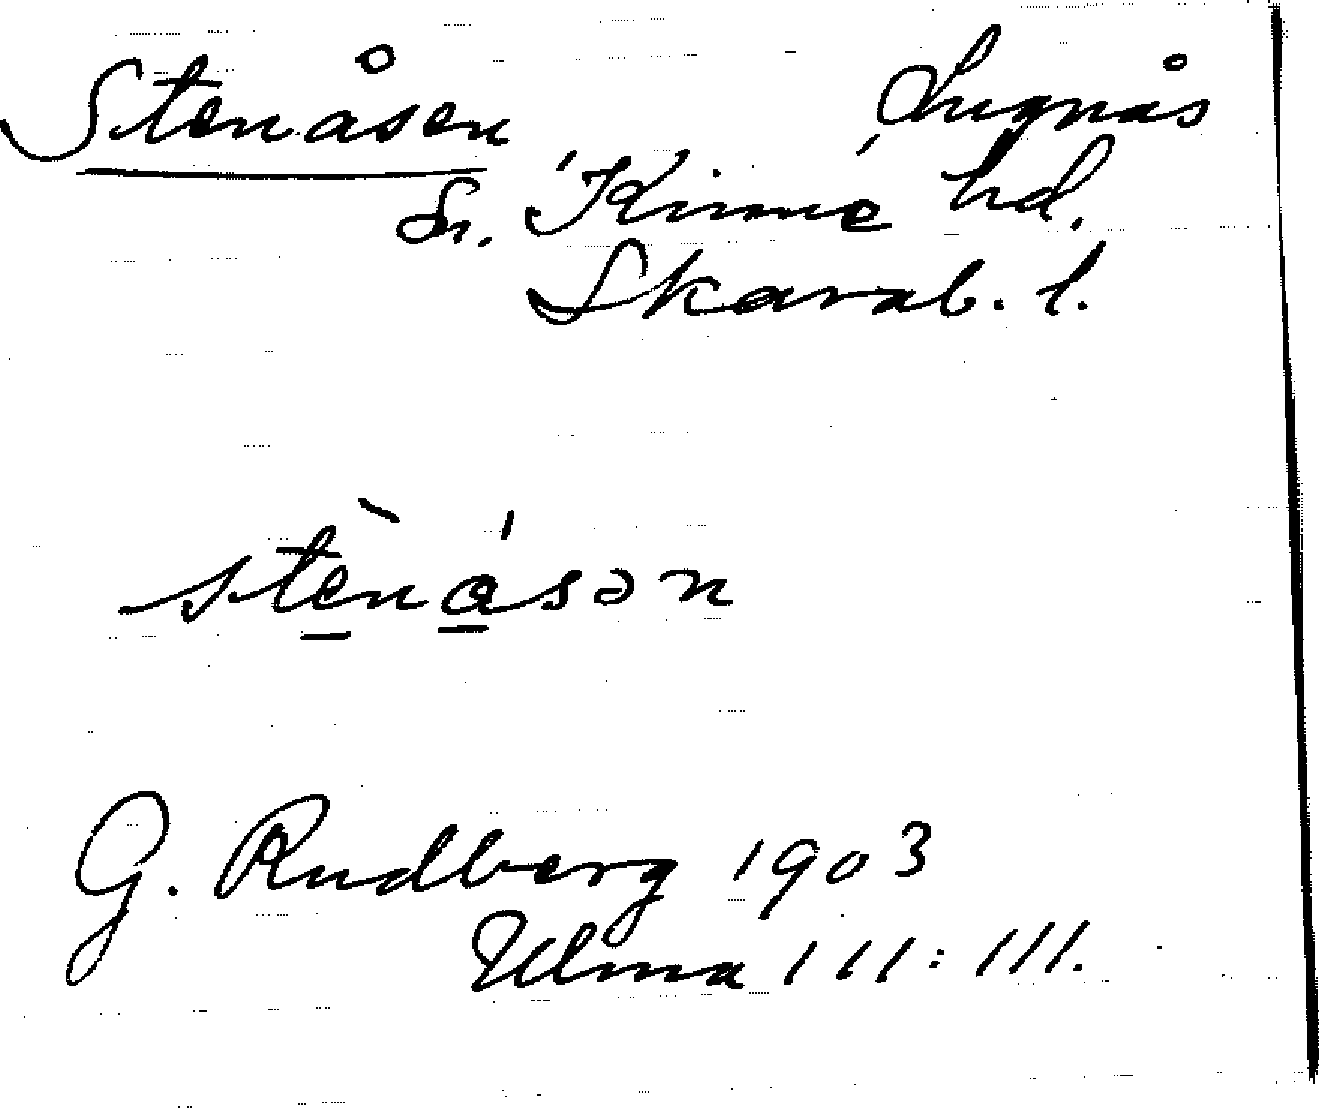 Stenåsen Lugnås
Sn. Kinne hd.
Skarab. l.
stènásən
G. Rudberg 1903
Ulma 111:111.